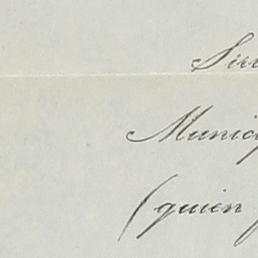 Sir
Munic
(quien